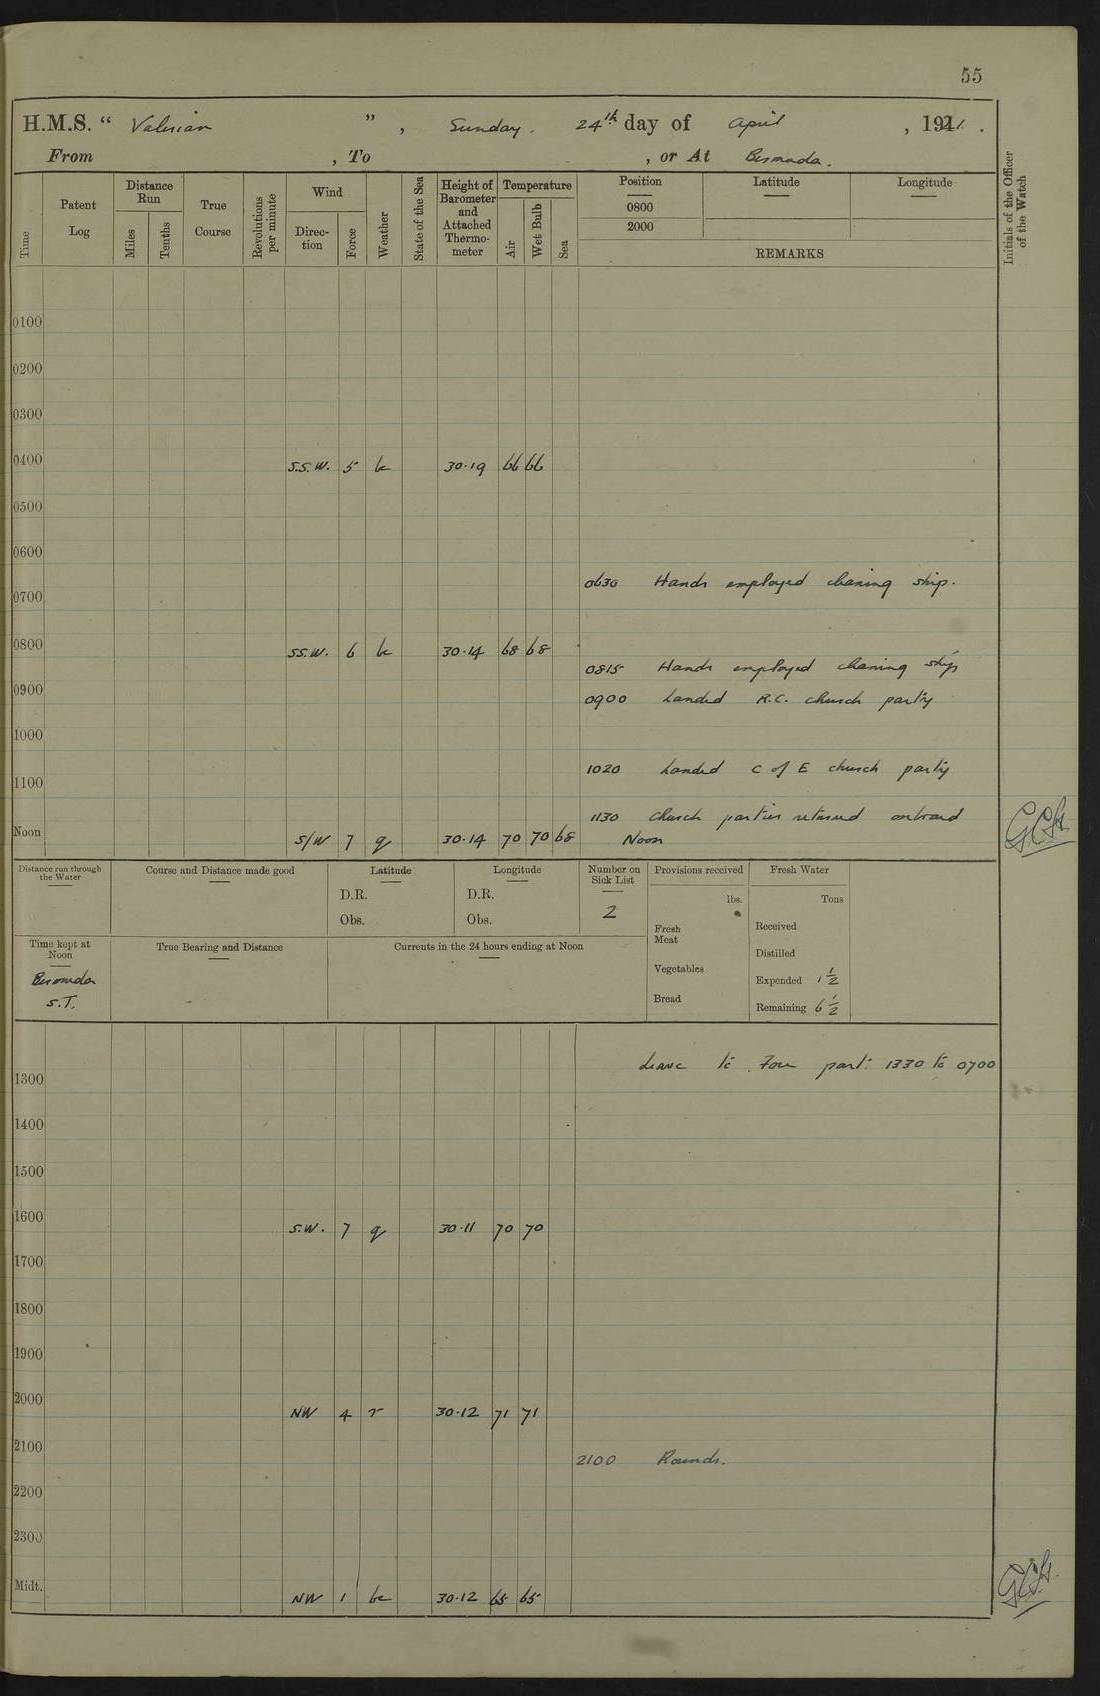 55
H.M.S. “ Valerian ” , Sunday. 24th day of April , 1921 .
From , To , or At Bermuda.
Time
Patent Log
Distance Run
Miles
Tenths
True Course
Revolutions per minute
Wind
Direction
Force
Weather
State of the Sea
Height of Barometer and Attached Thermometer
Temperature
Air
Wet Bulb
Sea
Position
0800
2000
Latitude
Longitude
REMARKS
Initials of the Officer of the Watch
0100
0200
0300
0400 S.S.W. 5 bc 30·19 66 66
0500
0600
0630 Hands employed cleaning ship.
0700
0800 SS.W. 6 bc 30·14 68 68
0815 Hands employed cleaning ship
0900
0900 Landed R.C. church party
1000
1020 Landed C of E church party
1100
1130 Church parties returned onboard
Noon S/W 7 q 30·14 70 70 68 Noon
Distance run through the Water
Course and Distance made good
Latitude
D.R.
Obs.
Longitude
D.R.
Obs.
Number on Sick List
2
Provisions received
lbs.
Fresh Meat
Vegetables
Bread
Fresh Water
Tons
Received
Distilled
Expended 1½
Remaining 6½
Time kept at Noon
Bermuda
S.T.
True Bearing and Distance
Currents in the 24 hours ending at Noon
Leave to part: 1330 to 0700
1300
1400
1500
1600 S.W. 7 q 30·11 70 70
1700
1800
1900
2000 NW 4 r 30·12 71 71
2100
2100 Rounds.
2200
2300
Midt. NW 1 bc 30·12 65 65